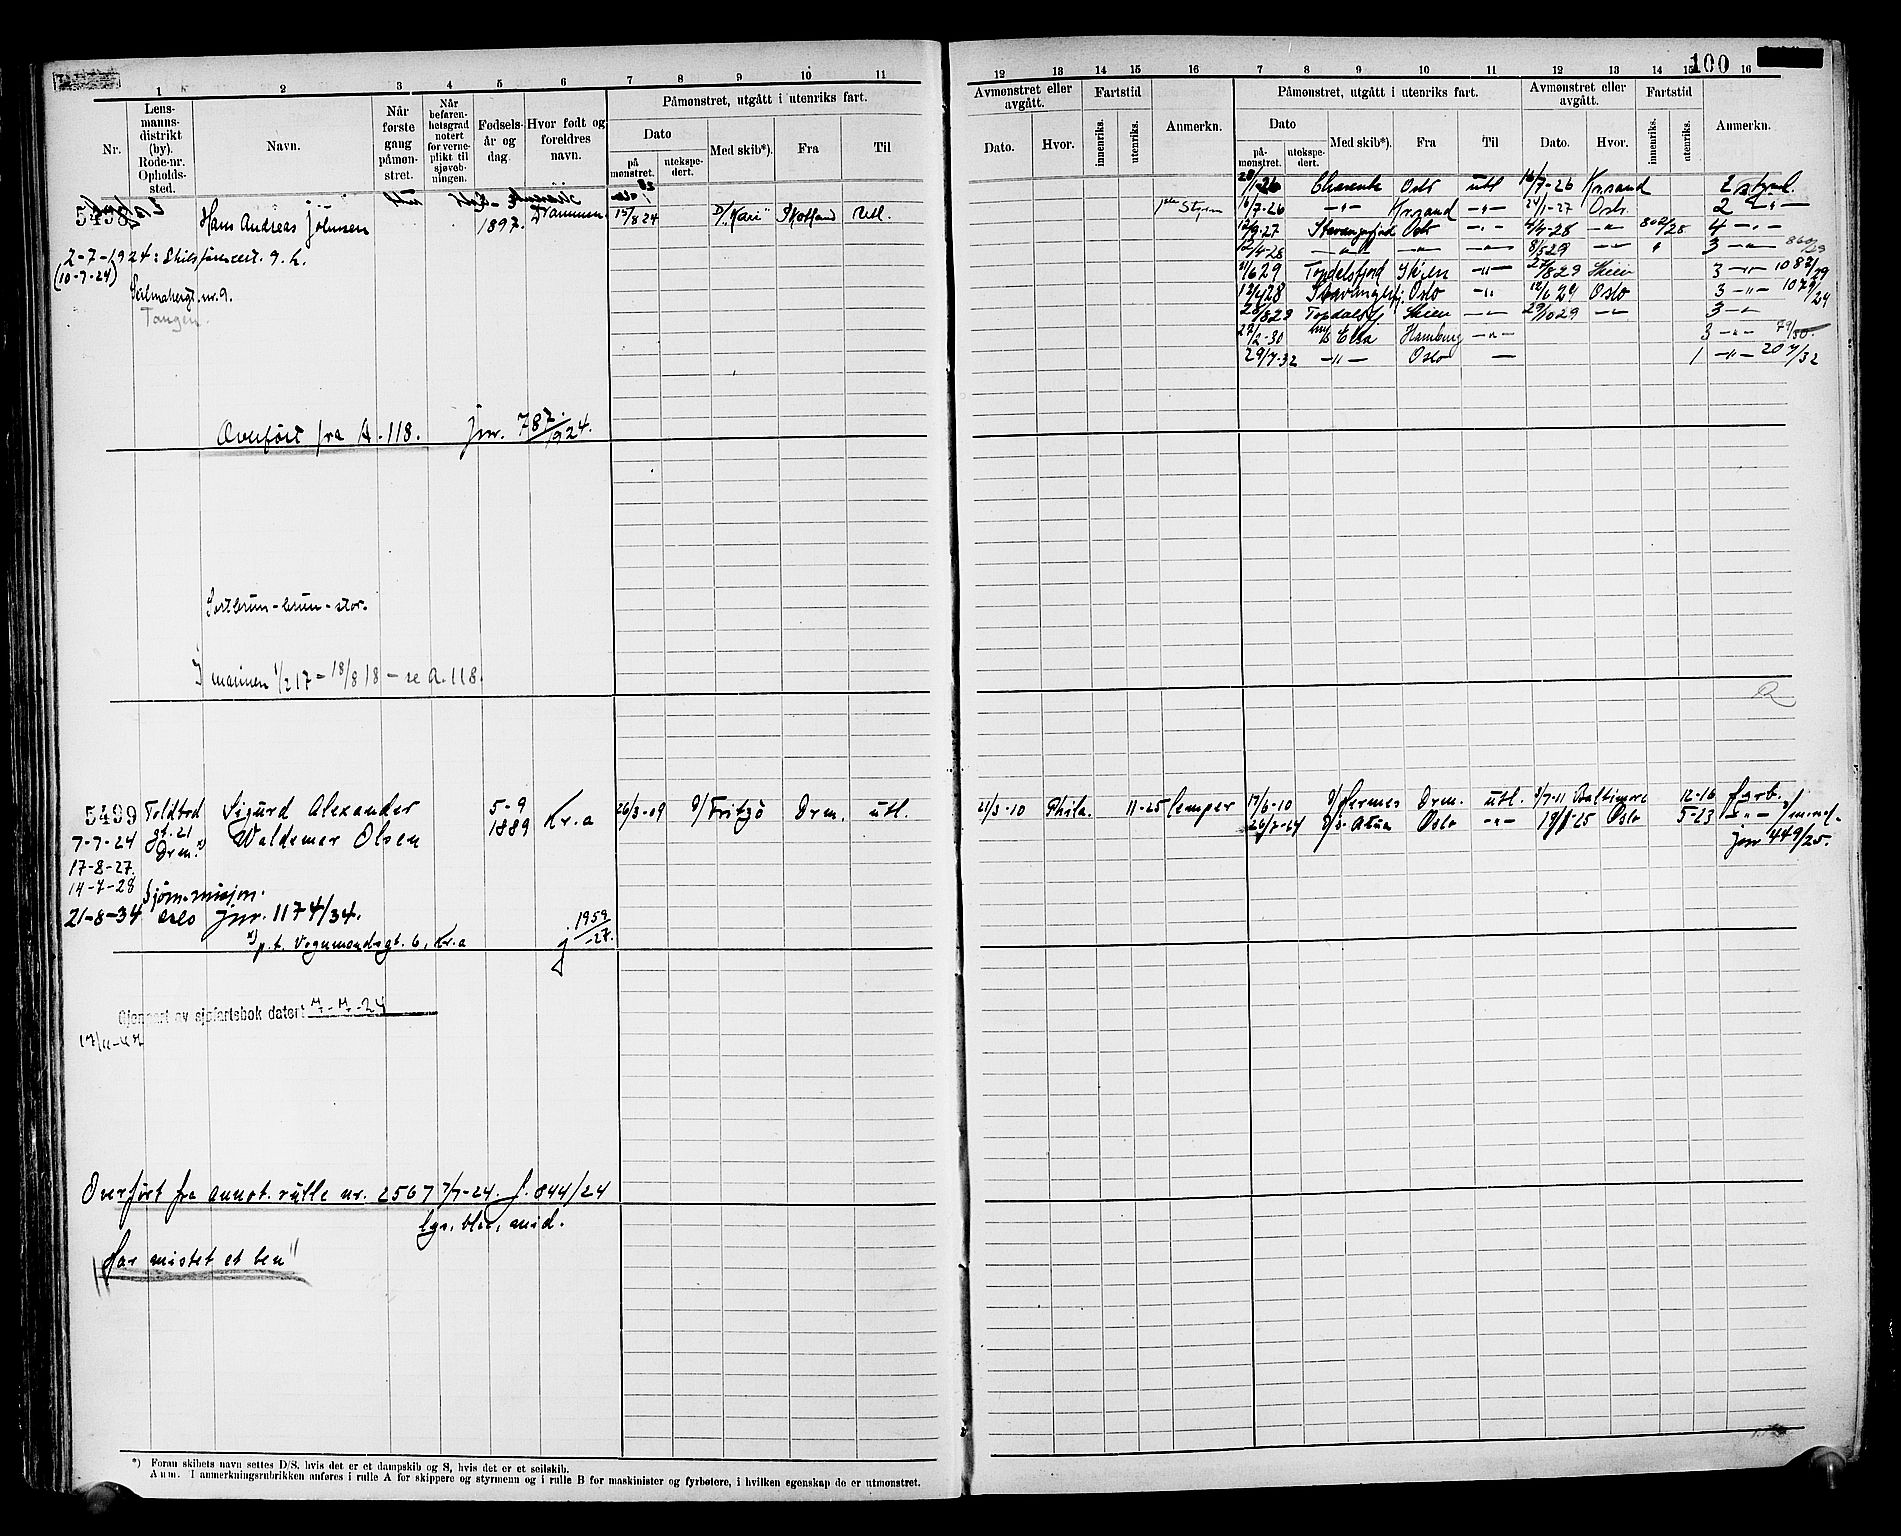 100
1 2 3 4 5 6 7 8 9 10 11
Nr.
Lens-
manns-
distrikt
(by).
Rode-nr.
Opholds-
sted.
Navn.
Når
første
gang
påmøn-
stret.
Når
befaren-
hetsgrad
notert
for verne-
plikt til
sjøveb-
ningen.
Fødsels-
år og
dag.
Hvor født og
foreldres
navn.
Påmønstret, utgått i utenriks fart.
Dato
på
mønstret.
utekspe-
dert.
Med skib*).
Fra
Til
12 13 14 15 16 7 8 9 10 11 12 13 14 15 16
Avmønstret eller
avgått.
Dato.
Hvor.
Fartstid
innenriks.
utenriks.
Anmerkn.
Påmønstret, utgått i utenriks fart.
Dato
på-
mønstret.
utekspe-
dert.
Med skib*).
Fra
Til
Avmønstret eller
avgått.
Dato.
Hvor.
Fartstid
innenriks.
utenriks.
Anmerkn.
5498 Hans Andreas Johnsen 1897. Drammen. 15/8 24 D/ "Kari" Skotland Utl.
2-7-1924: Skibsførercert. g. h.
(10-7-24)
nr. 9.
Tangen.
Overført fra A. 118. jnr. 782/1924.
Sortbrun - brun - stor.
I marinen 1/2 17 - 18/8 18 - se A. 118.
28/1-26 Charente Oslo utl 16/7-26 Krsand 2 styrl.
16/7-26 -"- Krsand -"- 24/1-27 Oslo 2 -"-
12/9-27 Stavangerfjord Oslo -"- 4/4-28 -"- 809/28 4 -"-
12/4-28 -"- -"- -"- 8/5 29 -"- " 3 -"- 860/29
1/6 29 Topdalsfjord Skien -"- 27/8 29 Skien 3 -"- 1087/29
12/4 28 Stavangerfj. Oslo -"- 12/6 29 Oslo 3 -"- 1079/24
28/8 29 Topdalsfj Skien -"- 29/10 29 -"- 3 -"-
27/2-30 Elsa Hamburg -"- 3 -"- 79/30
29/7-32 -"- Oslo - 1 -"- 207/32
5499 Toldbod Sigurd Alexander 5-9 Kr.a 26/3-09 S/ Fritzø Drm. utl. 21/3-10 Phila. 11-25 lemper 17/6-10 S/ Hermes Drm. utl. 3/7-11 Baltimore 12-16 fyrb.
7-7-24 gt. 21 Waldemar Olsen 1889 26/7-24 D/S. Atna Oslo -"- 19/1-25 Oslo 5-23 -"-
Drm. x)
17-8-27.
14-7-28 Sjømmisjon. jnr 449/25.
21-8-34 Oslo jnr. 1174/34.
x) p.t. Vognmandsgt. 6, Kr.a j. 1959/-27.
Gjenpart av sjøfartsbok datert 7-7-24
17/11-47
Overført fra annot. rulle nr. 2567 7/7-24. j. 844/24
lys, blå, mid.
"Har mistet et ben"
*) Foran skibets navn settes D/S. hvis det er et dampskib og S, hvis det er et seilskib.
Anm. I anmerkningsrubrikken anføres i rulle A for skippere og styrmenn og i rulle B for maskinister og fyrbøtere, i hvilken egenskap de er utmønstret.